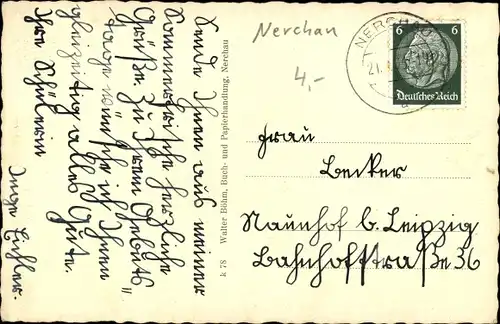 Sende Ihnen aus meiner
Sommerfrische herzliche
Grüße. Zu Ihrem Geburts"
tage wünsche ich Ihnen
gleizeitig alles Gute.
Ihre Schülerin
Inge Eichler.
k 78 Walter Böhm, Buch- und Papierhandlung, Nerchau
Nerchau
4,-
NERCHAU
21.
6 6
Deutsches Reich
Frau
Becker
Naunhof b. Leipzig
Bahnhofstraße 36